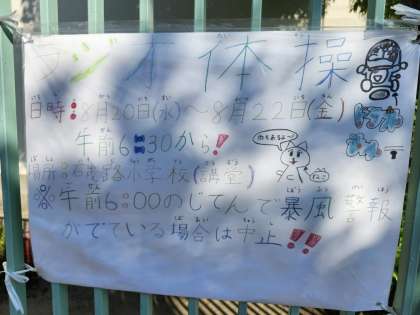 ラジオ体操
日時:8月20日(水)〜8月22日(金)
午前6:30から!
場所:石尾台小学校(講堂)
※午前6:00のじてんで暴風警報
がでている場合は中止!!